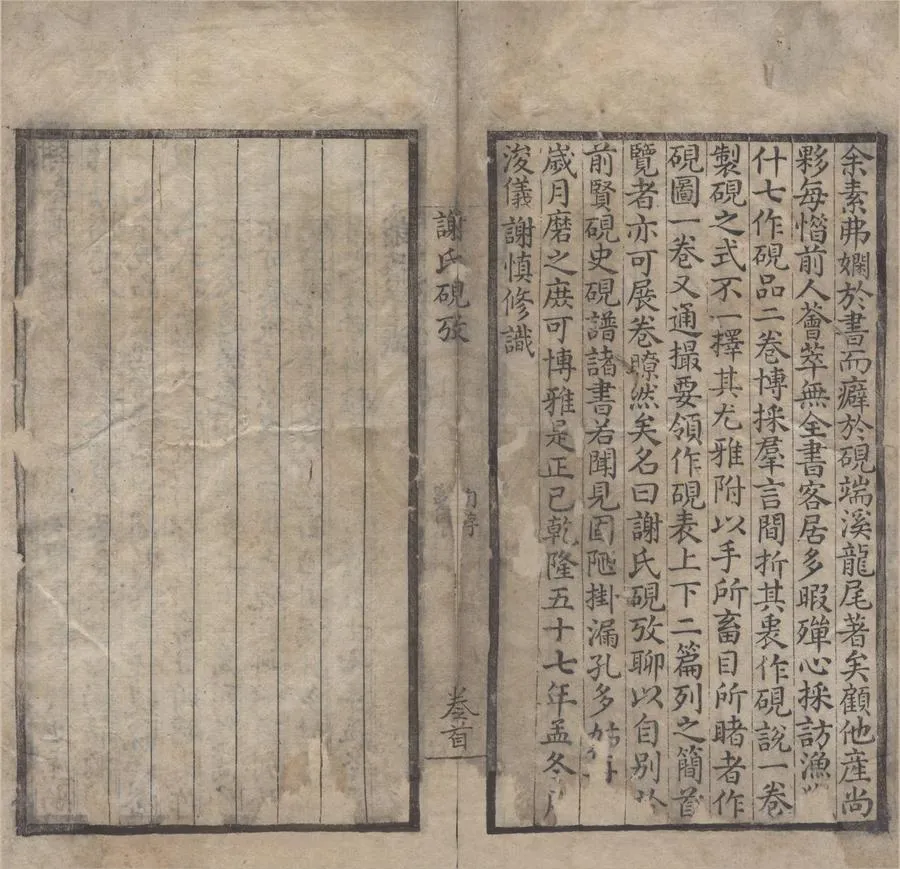 余素弗嫺於書而癖於硯端溪龍尾著矣顧他産尚
夥每惜前人薈萃無全書客居多暇殫心採訪漁
什七作硯品二卷博採羣言間折其衷作硯說一卷
製硯之式不一擇其尤雅附以手所畜目所睹者作
硯圖一卷又通撮要領作硯表上下二篇列之簡首
覽者亦可展卷瞭然矣名曰謝氏硯攷聊以自別於
前賢硯史硯譜諸書若聞見固陋掛漏孔多
嵗月磨之庶可博雅是正已乾隆五十七年孟冬月
浚儀謝慎修識
謝氏硯攷
自序
卷首